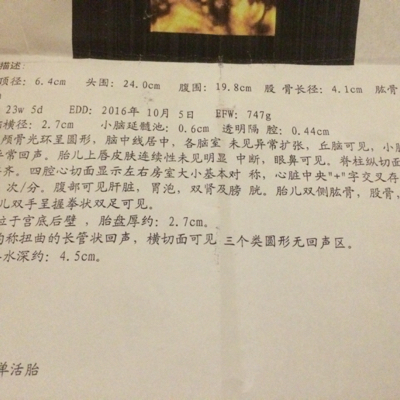 描述:
顶径: 6.4cm 头围: 24.0cm 腹围: 19.8cm 股骨长径: 4.1cm 肱骨
23w 5d EDD: 2016年 10月 5日 EFW: 747g
脑横径: 2.7cm 小脑延髓池: 0.6cm 透明隔 腔: 0.44cm
颅骨光环呈圆形, 脑中线居中, 各脑室 未见异常扩张, 丘脑可见, 小脑
异常回声。胎儿上唇皮肤连续性未见明显 中断, 眼鼻可见。脊柱纵切面
齐。四腔心切面显示左右房室大小基本对 称, 心脏中央"+"字交叉存
次/分。腹部可见肝脏, 胃泡, 双肾及膀 胱。胎儿双侧肱骨, 股骨,
儿双手呈握拳状双足可见。
位于宫底后壁, 胎盘厚约: 2.7cm。
称扭曲的长管状回声, 横切面可见 三个类圆形无回声区。
水深约: 4.5cm。
单活胎